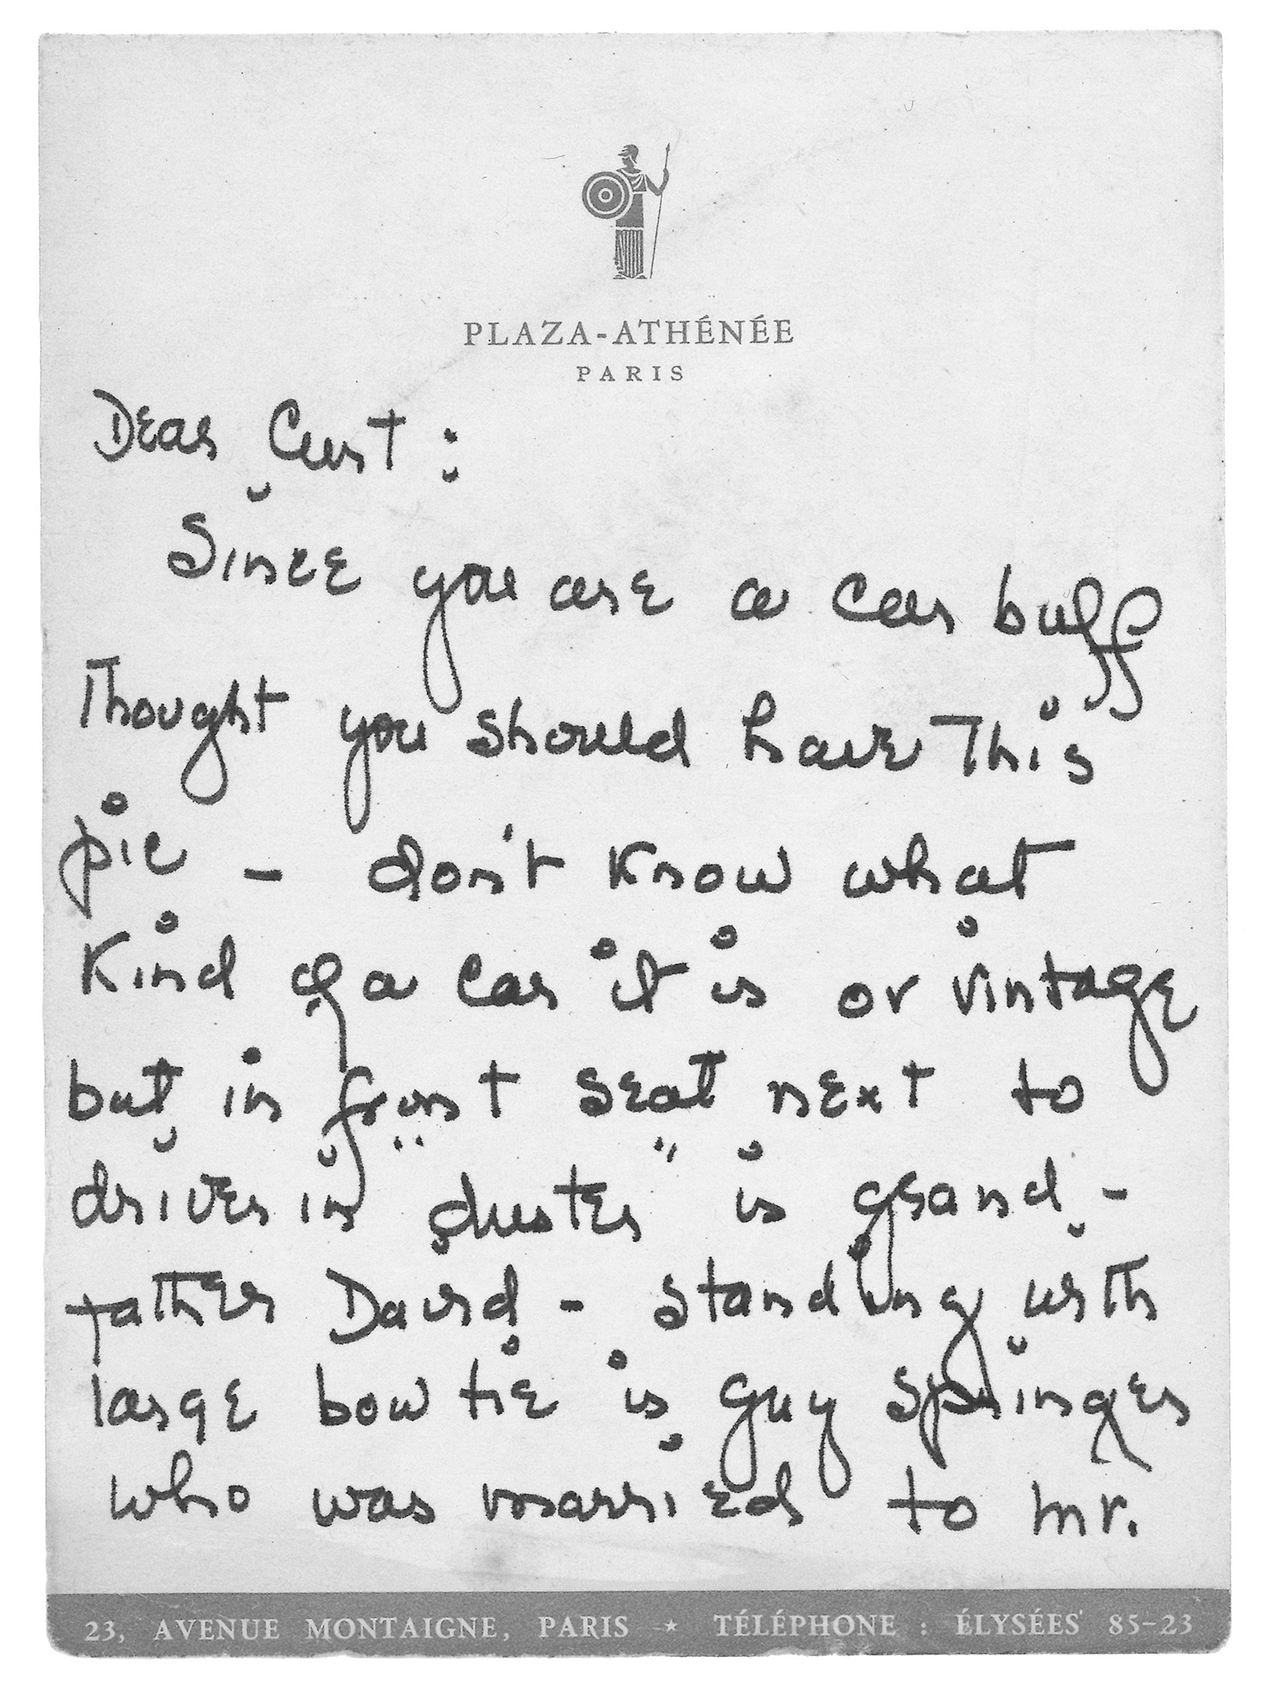 PLAZA-ATHÉNÉE
PARIS
Dear Curt :
Since you are a car buff
Thought you should have This
pic - don't know what
Kind of a car it is or vintage
but in front seat next to
driver in "duster" is grand-
father David - standing with
large bow tie is Guy Springer
who was married to Mr.
23, AVENUE MONTAIGNE, PARIS ★ TÉLÉPHONE : ÉLYSÉES 85-23